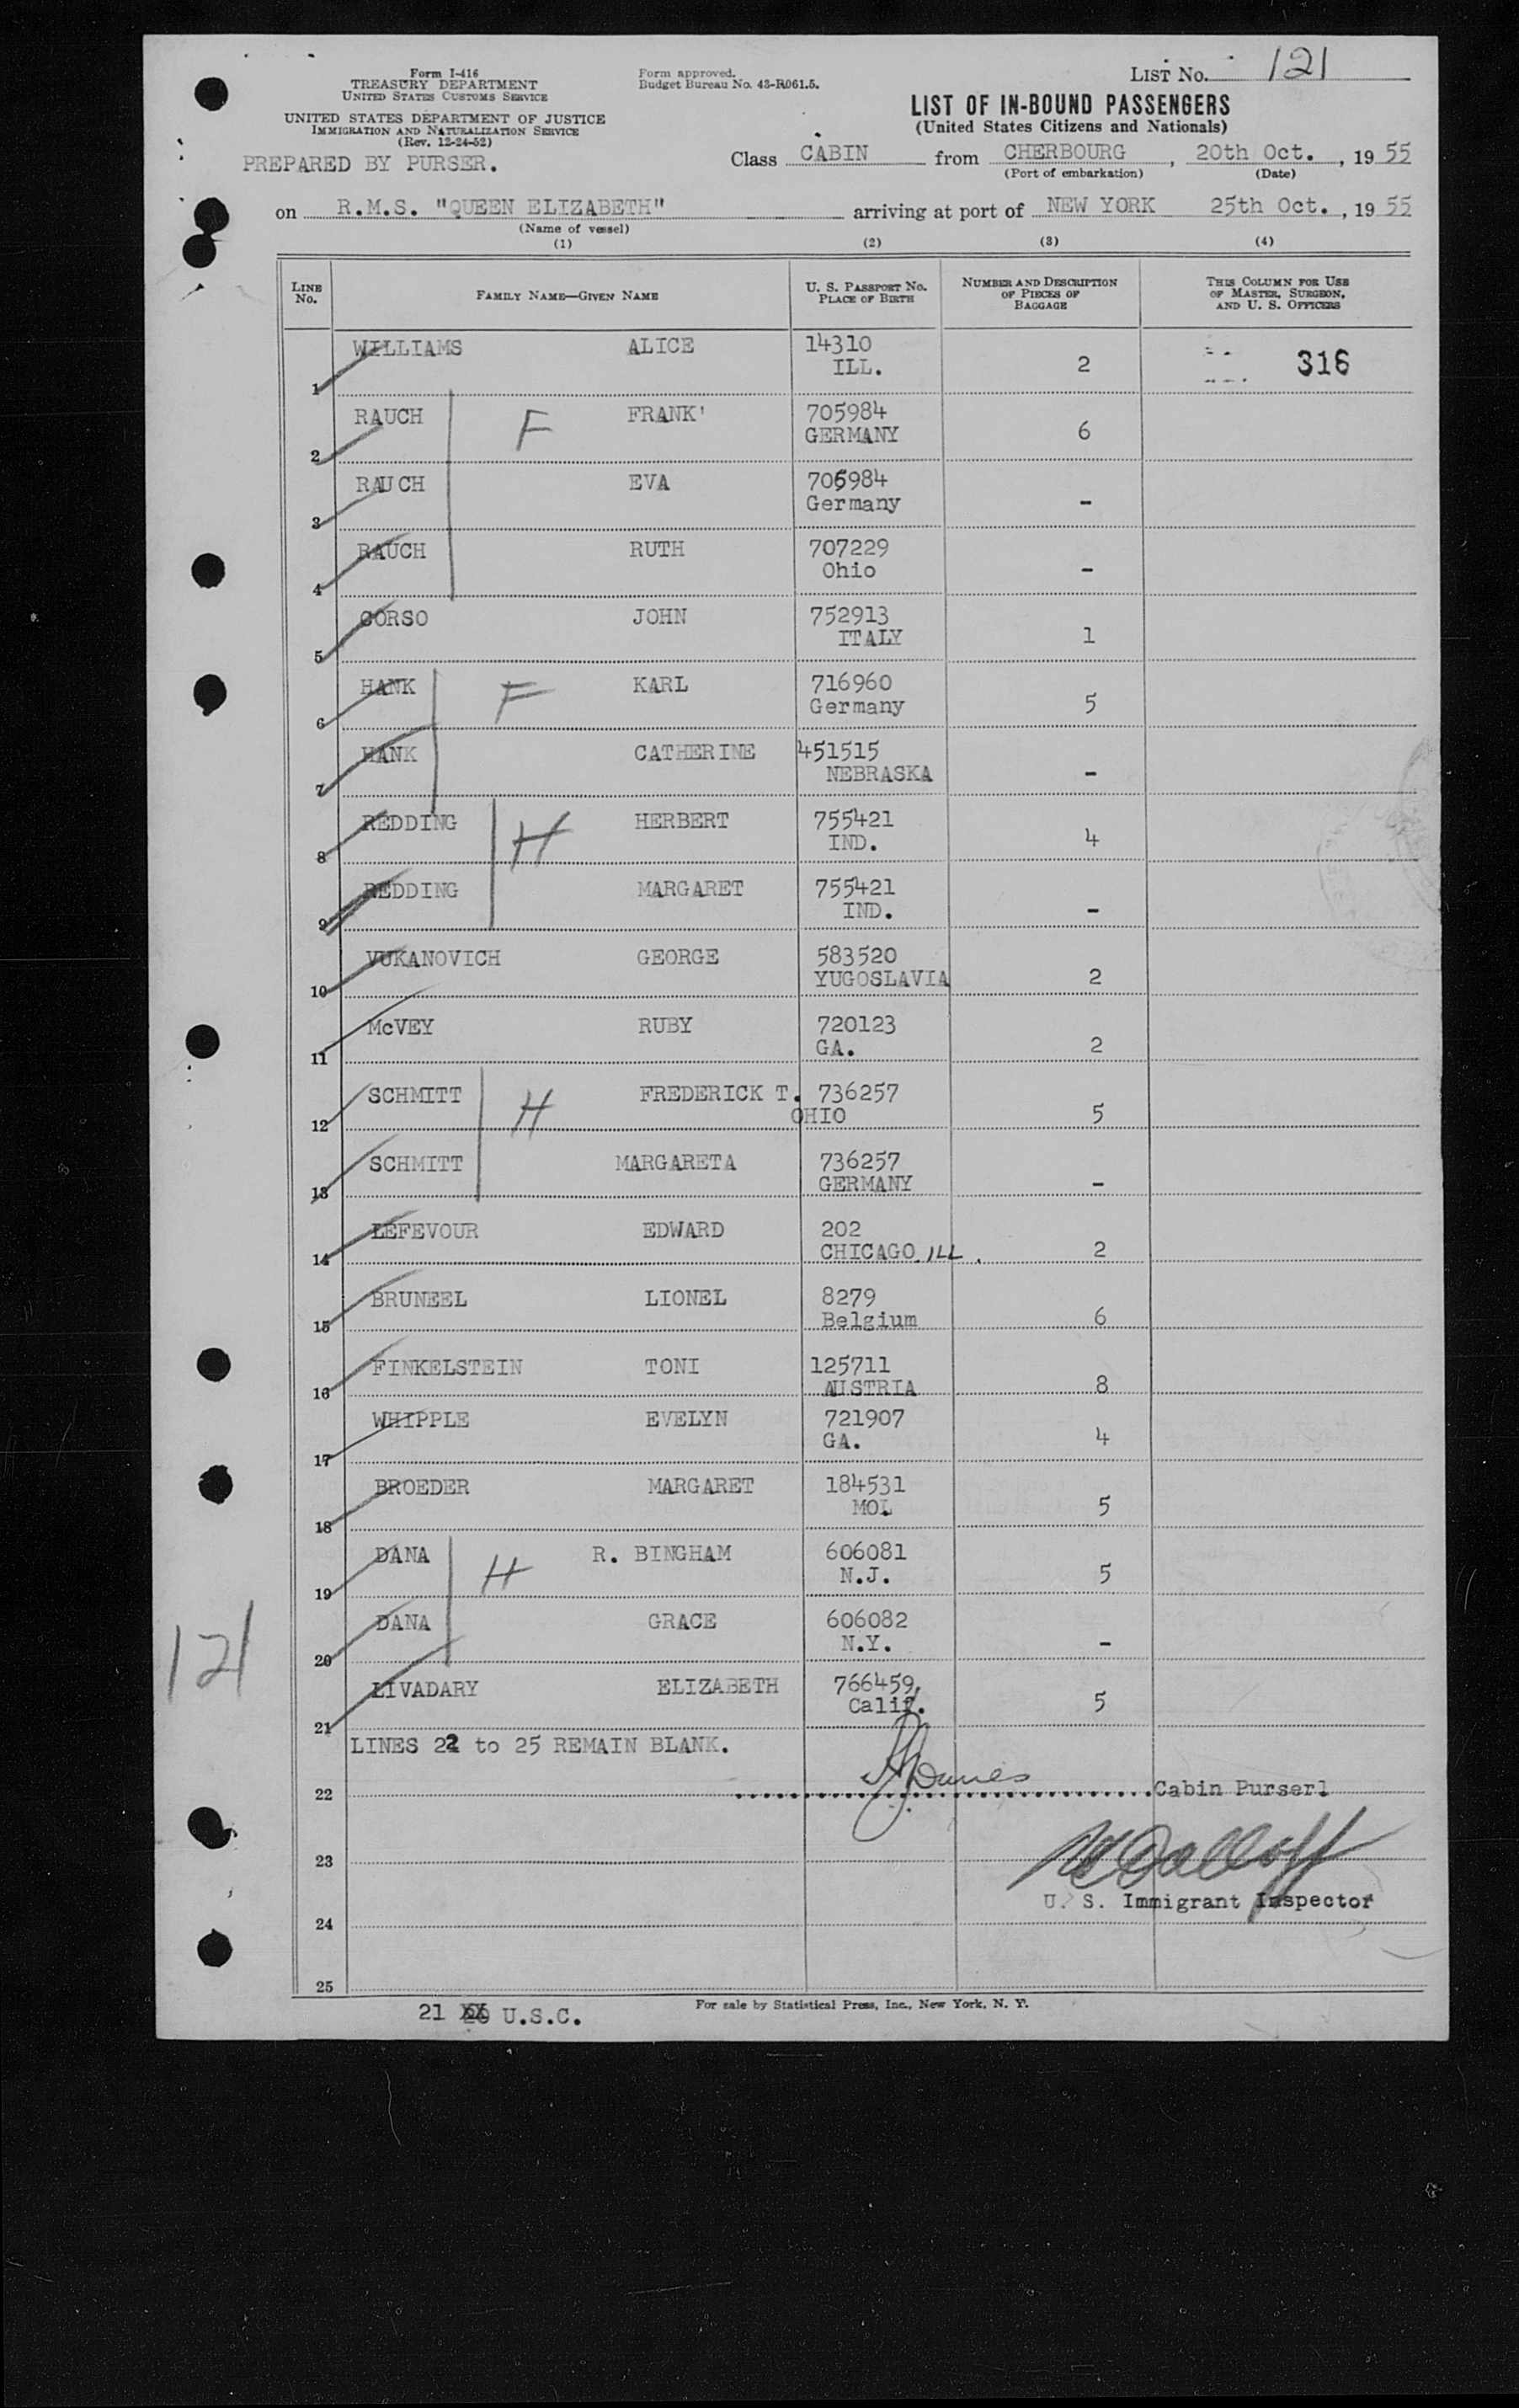 Form I-416
TREASURY DEPARTMENT
UNITED STATES CUSTOMS SERVICE
UNITED STATES DEPARTMENT OF JUSTICE
IMMIGRATION AND NATURALIZATION SERVICE
(Rev. 12-24-52)
PREPARED BY PURSER.
Form approved.
Budget Bureau No. 43-R061.5.
LIST No. 121
LIST OF IN-BOUND PASSENGERS
(United States Citizens and Nationals)
Class CABIN from CHERBOURG, 20th Oct., 19 55
(Port of embarkation) (Date)
on R.M.S. "QUEEN ELIZABETH" arriving at port of NEW YORK 25th Oct., 19 55
(Name of vessel)
(1) (2) (3) (4)
LINE NO. FAMILY NAME—GIVEN NAME U. S. PASSPORT NO. PLACE OF BIRTH NUMBER AND DESCRIPTION OF PIECES OF BAGGAGE THIS COLUMN FOR USE OF MASTER, SURGEON, AND U. S. OFFICERS
1 WILLIAMS ALICE 14310 ILL. 2 316
2 RAUCH F FRANK' 705984 GERMANY 6
3 RAUCH EVA 705984 Germany -
4 RAUCH RUTH 707229 Ohio -
5 CORSO JOHN 752913 ITALY 1
6 HANK F KARL 716960 Germany 5
7 HANK CATHERINE 451515 NEBRASKA -
8 REDDING H HERBERT 755421 IND. 4
9 REDDING MARGARET 755421 IND. -
10 VUKANOVICH GEORGE 583520 YUGOSLAVIA 2
11 McVEY RUBY 720123 GA. 2
12 SCHMITT H FREDERICK T. 736257 OHIO 5
13 SCHMITT MARGARETA 736257 GERMANY -
14 LEFEVOUR EDWARD 202 CHICAGO. ILL. 2
15 BRUNEEL LIONEL 8279 Belgium 6
16 FINKELSTEIN TONI 125711 AUSTRIA 8
17 WHIPPLE EVELYN 721907 GA. 4
18 BROEDER MARGARET 184531 MO. 5
19 DANA H R. BINGHAM 606081 N.J. 5
20 DANA GRACE 606082 N.Y. -
21 LIVADARY ELIZABETH 766459 Calif. 5
121
LINES 22 to 25 REMAIN BLANK.
22 Cabin Purserl
23
U. S. Immigrant Inspector
24
25
21 U.S.C.
For sale by Statistical Press, Inc., New York, N. Y.